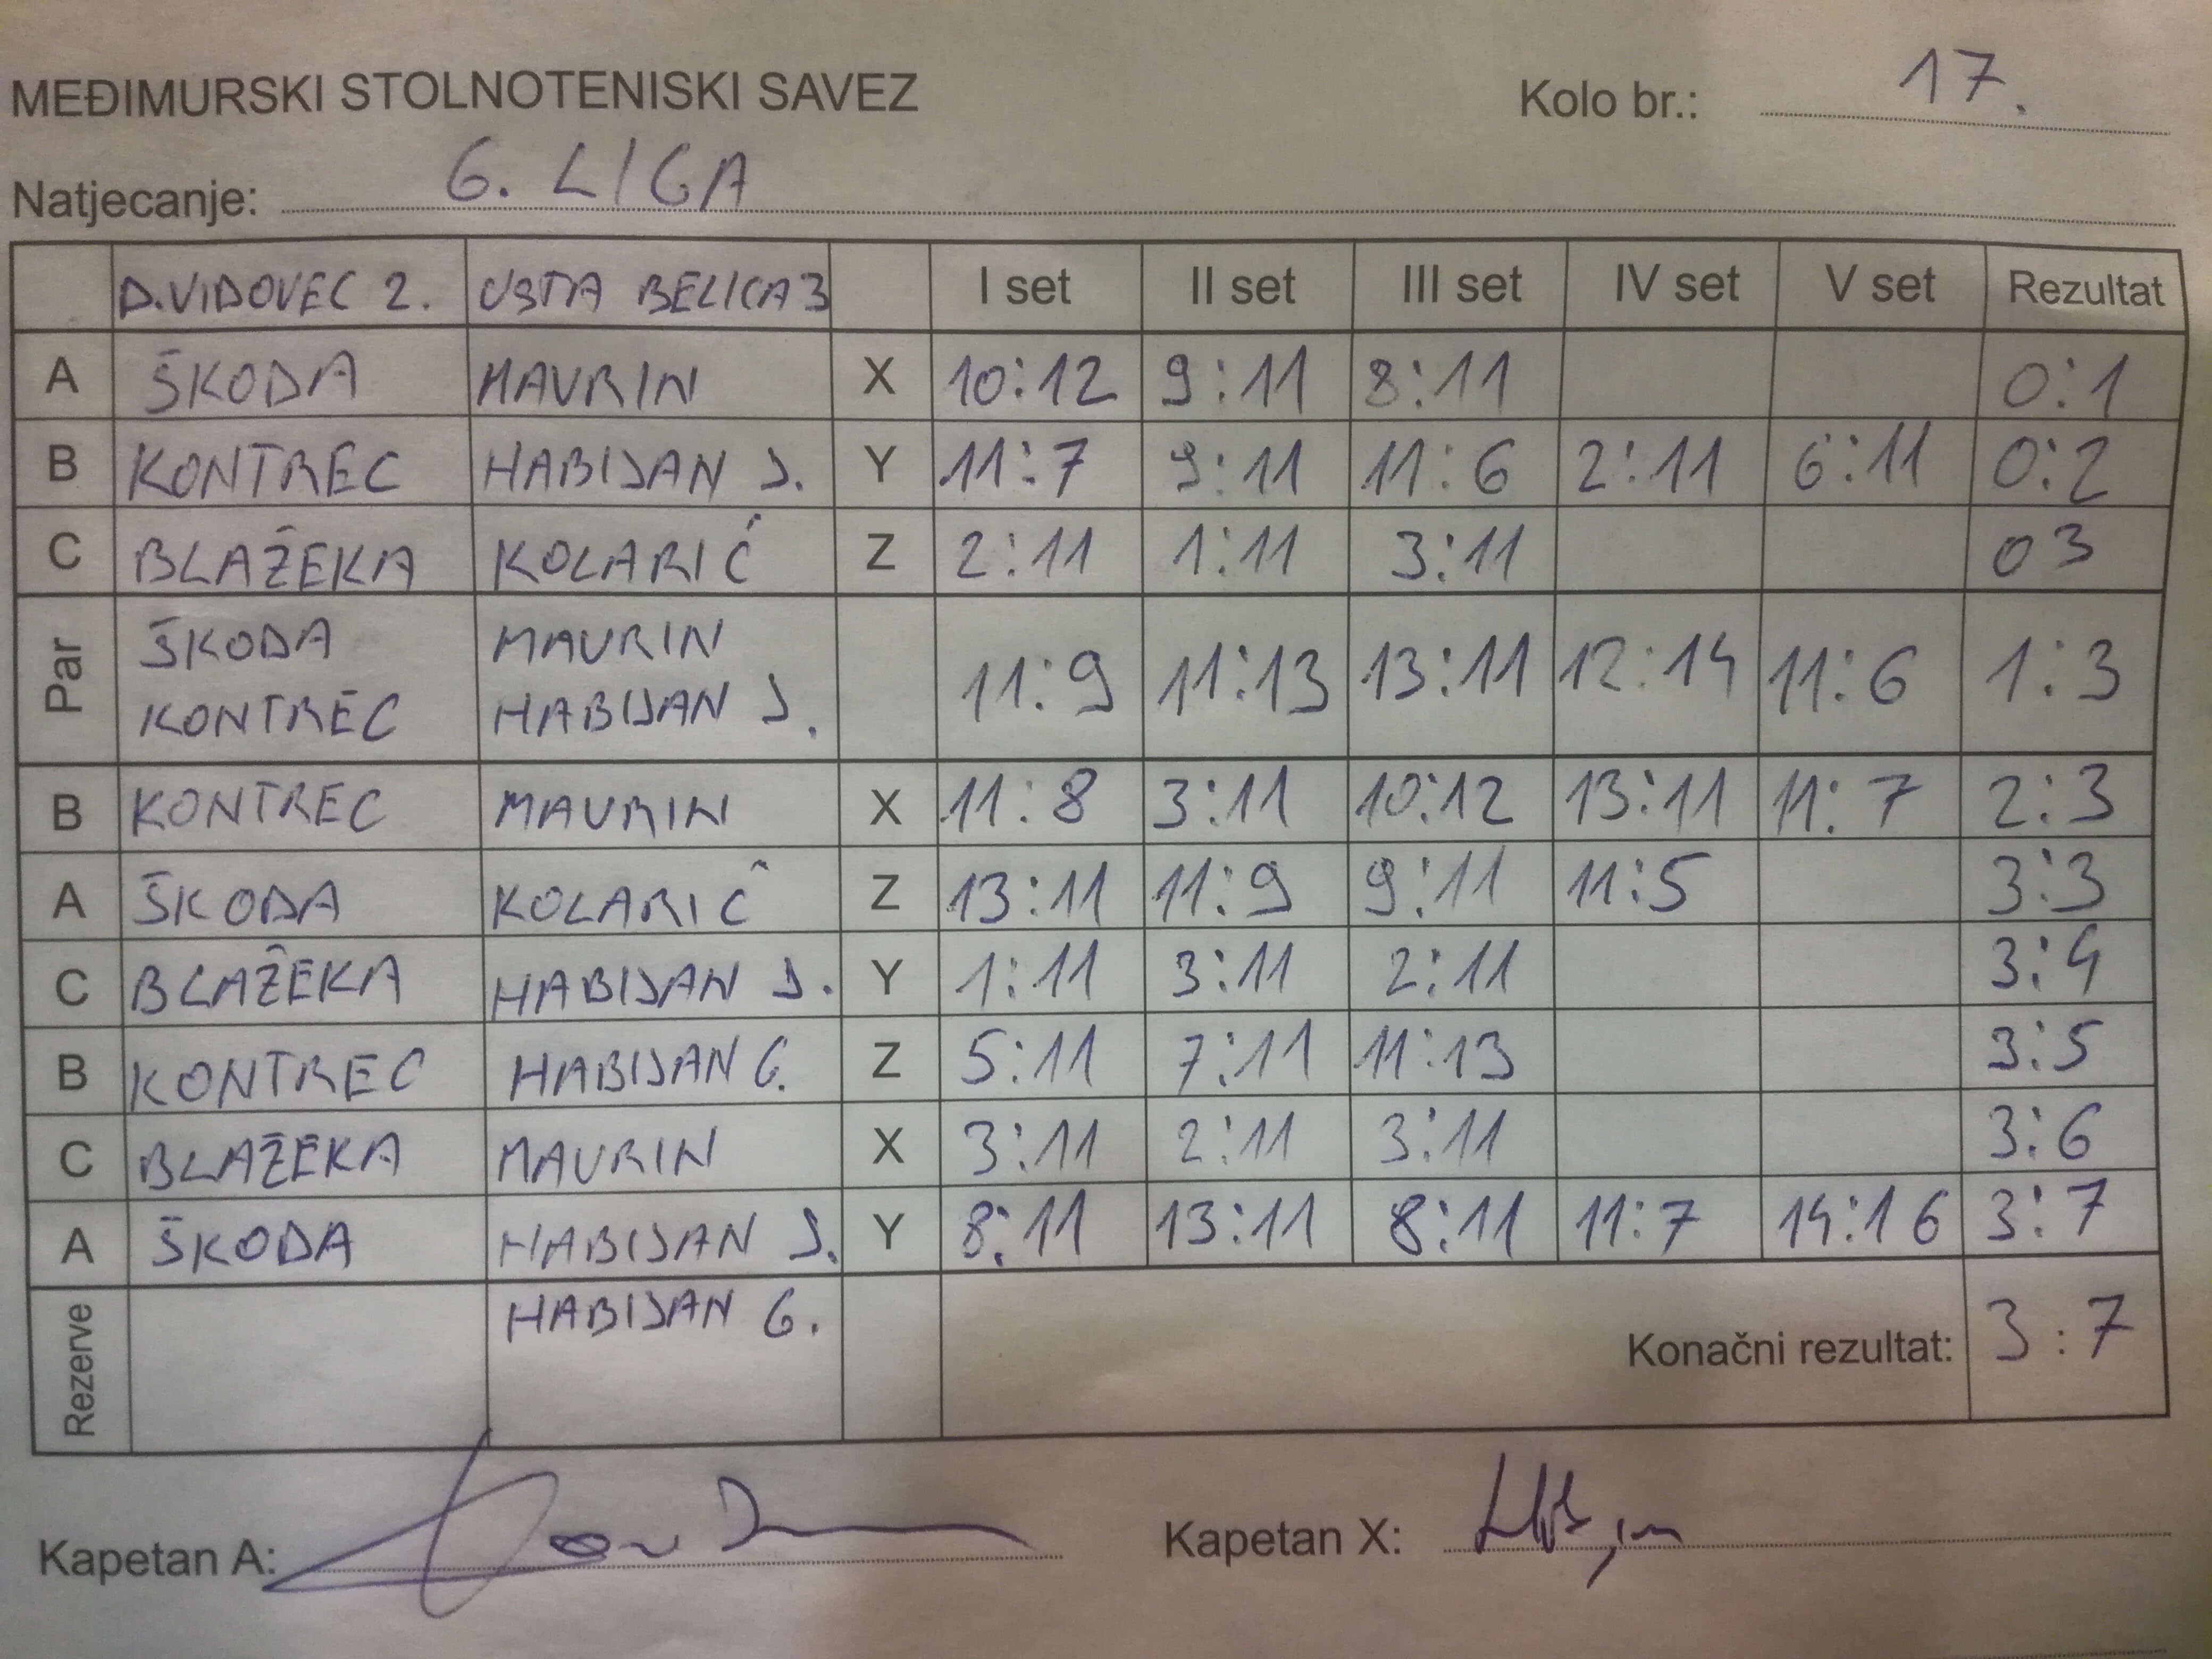 MEĐIMURSKI STOLNOTENISKI SAVEZ Kolo br.: 17.
Natjecanje: 6. LIGA
D.VIDOVEC 2. USTA BELICA 3 I set II set III set IV set V set Rezultat
A ŠKODA MAVRIN X 10:12 9:11 8:11 0:1
B KONTREC HABIJAN J. Y 11:7 9:11 11:6 2:11 6:11 0:2
C BLAŽEKA KOLARIĆ Z 2:11 1:11 3:11 0 3
Par ŠKODA MAVRIN
KONTREC HABIJAN J. 11:9 11:13 13:11 12:14 11:6 1:3
B KONTREC MAVRIN X 11:8 3:11 10:12 13:11 11:7 2:3
A ŠKODA KOLARIĆ Z 13:11 11:9 9:11 11:5 3:3
C BLAŽEKA HABIJAN J. Y 1:11 3:11 2:11 3:4
B KONTREC HABIJAN G. Z 5:11 7:11 11:13 3:5
C BLAŽEKA MAVRIN X 3:11 2:11 3:11 3:6
A ŠKODA HABIJAN J. Y 8:11 13:11 8:11 11:7 14:16 3:7
Rezerve HABIJAN G. Konačni rezultat: 3:7
Kapetan A: Kapetan X: